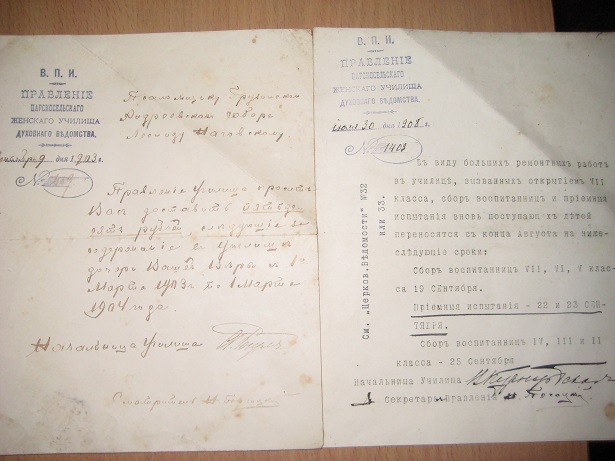 В. П. И.
ПРАВЛЕНІЕ
ЦАРСКОСЕЛЬСКАГО
ЖЕНСКАГО УЧИЛИЩА
ДУХОВНАГО ВѢДОМСТВА.
9 дня 1903 г.
№
Псаломщику
собора
Леониду
Правленіе Училища проситъ
Васъ доставить
рублей слѣдующіе за
содержаніе в Училищѣ
дочери Вашей Вѣры с 1го
Марта 1903 г. по 1 Марта
1904 года.
Начальница Училища
В. П. И.
ПРАВЛЕНІЕ
ЦАРСКОСЕЛЬСКАГО
ЖЕНСКАГО УЧИЛИЩА
ДУХОВНАГО ВѢДОМСТВА.
30 дня 1908 г.
№ 1403
См. "Церков. Вѣдомости" №32
или 33.
Въ виду большихъ ремонтныхъ работъ
въ училищѣ, вызванныхъ открытіемъ VII
класса, сборъ воспитанницъ и пріемныя
испытанія вновь поступающихъ дѣтей
переносятся съ конца Августа на ниже-
слѣдующіе сроки:
Сборъ воспитанницъ VII, VI, V класса
19 Сентября.
Пріемныя испытанія - 22 и 23 СЕН-
ТЯБРЯ.
Сборъ воспитанницъ IV, III и II
класса - 25 Сентября
Начальница Училища
Секретарь Правленія